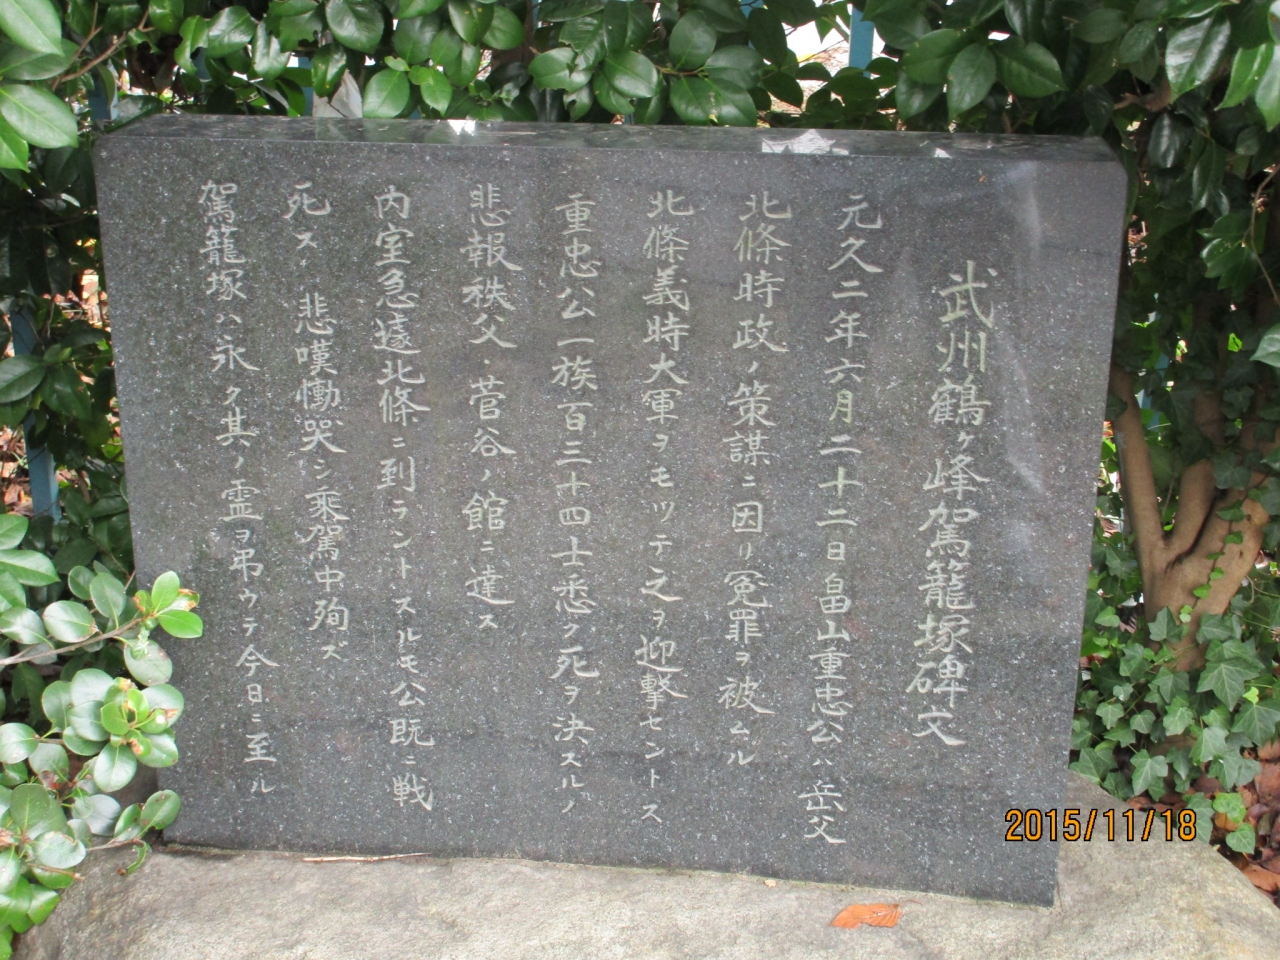 武州鶴ヶ峰駕籠塚碑文
元久二年六月二十二日畠山重忠公ハ岳父
北條時政ノ策謀ニ因リ冤罪ヲ被ムル
北條義時大軍ヲモツテ之ヲ迎撃セントス
重忠公一族百三十四士悉ク死ヲ決スルノ
悲報秩父、菅谷ノ館ニ達ス
内室急遽北條ニ到ラントスルモ公既ニ戦
死ス 悲嘆慟哭シ乘駕中殉ズ
駕籠塚ハ永ク其ノ霊ヲ弔ウテ今日ニ至ル
2015/11/18